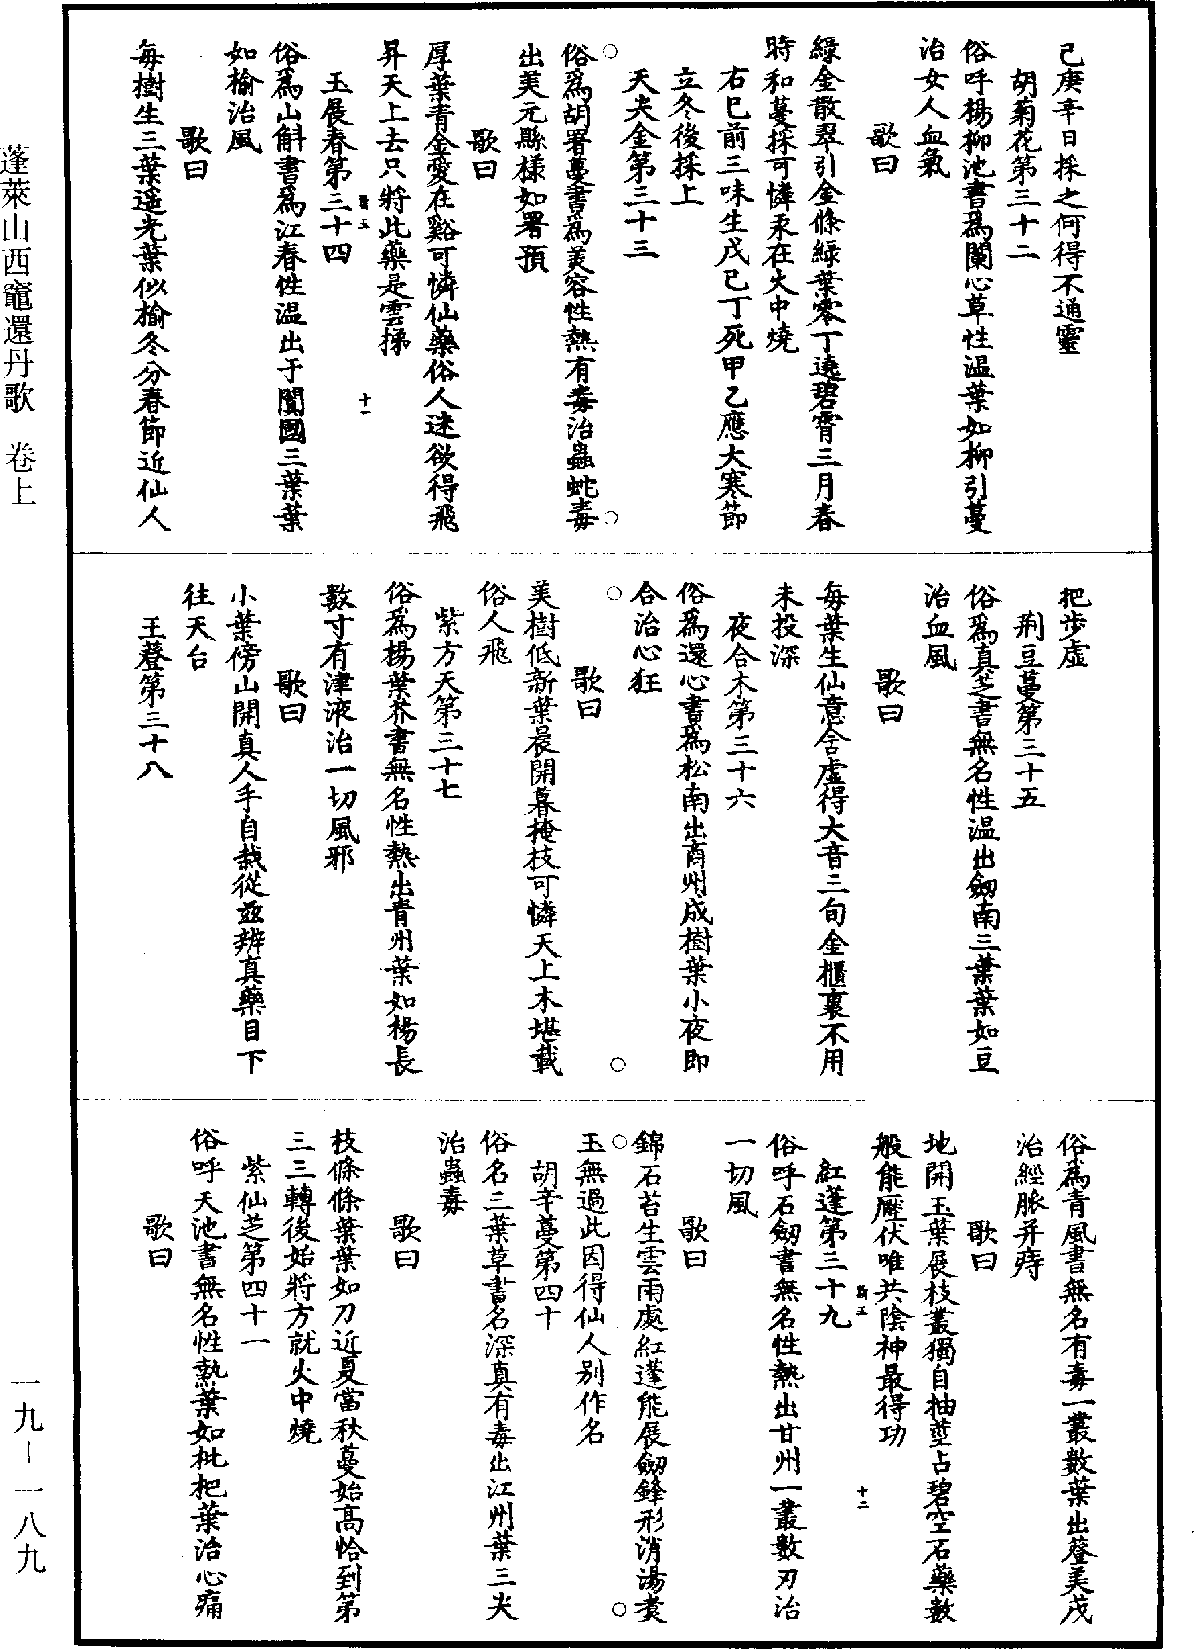 己庚辛日採之何得不通靈
胡菊花第三十二
俗呼楊柳池書爲蘭心草性温葉如柳引蔓
治女人血氣
歌曰
綠金散翠引金條綠葉零丁遶碧霄三月春
時和蔓採可憐汞在火中燒
右巳前三味生戊已丁死甲乙應大寒節
立冬後採上
天夾金第三十三
俗爲胡署蔓書爲美容性熱有毒治蟲蛇毒
出美元縣樣如署預
歌曰
厚葉青金愛在谿可憐仙藥俗人迷欲得飛
昇天上去只將此藥是雲梯
斯五 十一
玉展春第三十四
俗爲山斛書爲江春性温出于闐國三葉葉
如榆治風
歌曰
每樹生三葉遥光葉似榆冬分春節近仙人
把步虛
荆豆蔓第三十五
俗爲真芝書無名性温出劒南三葉葉如豆
治血風
歌曰
每葉生仙意含虛得大音三旬金櫃裏不用
未投深
夜合木第三十六
俗爲還心書爲松南出商州成樹葉小夜即
合治心狂
歌曰
美樹低新葉晨開暮掩枝可憐天上木堪載
俗人飛
紫方天第三十七
俗爲楊葉芥書無名性熱出青州葉如楊長
數寸有津液治一切風邪
歌曰
小葉傍山開真人手自栽從兹辨真藥目下
往天台
王蔓第三十八
俗爲青風書無名有毒一叢數葉出蔓美茂
治經脈并痔
歌曰
地開玉葉展枝叢獨自抽莖占碧空石藥數
般能壓伏唯共陰神最得功
斯五 十二
紅蓬第三十九
俗呼石劒書無名性熱出甘州一叢數刃治
一切風
歌曰
錦石苔生雲雨處紅蓬能展劒鋒形消湯煑
玉無過此因得仙人别作名
胡辛蔓第四十
俗名三葉草書名深真有毒出江州葉三尖
治蟲毒
歌曰
枝條條葉葉如刀近夏當秋蔓始高恰到第
三三轉後始將方就火中燒
紫仙芝第四十一
俗呼天池書無名性熱葉如枇杷葉治心痛
歌曰
蓬萊山西竈還丹歌 卷上
一九-一八九